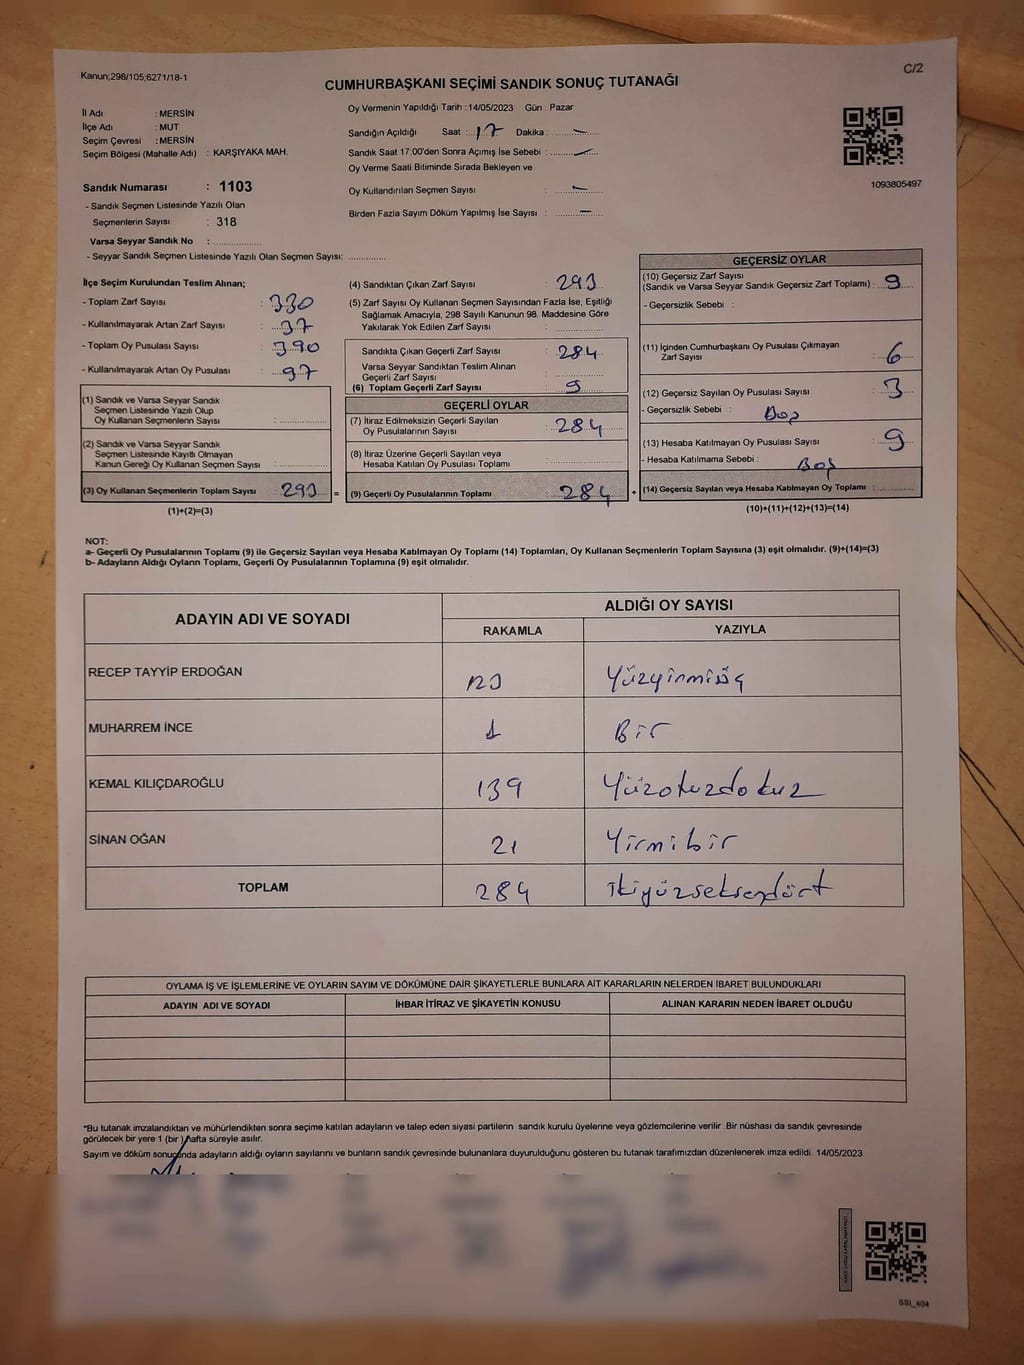 Kanun;298/105;6271/18-1
C/2
CUMHURBAŞKANI SEÇİMİ SANDIK SONUÇ TUTANAĞI
İl Adı : MERSİN
İlçe Adı : MUT
Seçim Çevresi : MERSİN
Seçim Bölgesi (Mahalle Adı) : KARŞIYAKA MAH.
Sandık Numarası : 1103
- Sandık Seçmen Listesinde Yazılı Olan
Seçmenlerin Sayısı : 318
Varsa Seyyar Sandık No : ................
- Seyyar Sandık Seçmen Listesinde Yazılı Olan Seçmen Sayısı: ............
Oy Vermenin Yapıldığı Tarih : 14/05/2023 Gün : Pazar
Sandığın Açıldığı Saat : 17 Dakika : —
Sandık Saat 17:00'den Sonra Açımış İse Sebebi : —
Oy Verme Saati Bitiminde Sırada Bekleyen ve
Oy Kullandırılan Seçmen Sayısı : —
Birden Fazla Sayım Döküm Yapılmış İse Sayısı : —
1093805497
İlçe Seçim Kurulundan Teslim Alınan;
- Toplam Zarf Sayısı : 330
- Kullanılmayarak Artan Zarf Sayısı : 37
- Toplam Oy Pusulası Sayısı : 390
- Kullanılmayarak Artan Oy Pusulası : 97
(1) Sandık ve Varsa Seyyar Sandık
Seçmen Listesinde Yazılı Olup
Oy Kullanan Seçmenlerin Sayısı : ............
(2) Sandık ve Varsa Seyyar Sandık
Seçmen Listesinde Kayıtlı Olmayan
Kanun Gereği Oy Kullanan Seçmen Sayısı : ............
(3) Oy Kullanan Seçmenlerin Toplam Sayısı : 293 =
(1)+(2)=(3)
(4) Sandıktan Çıkan Zarf Sayısı : 293
(5) Zarf Sayısı Oy Kullanan Seçmen Sayısından Fazla İse, Eşitliği
Sağlamak Amacıyla, 298 Sayılı Kanunun 98. Maddesine Göre
Yakılarak Yok Edilen Zarf Sayısı : ............
Sandıkta Çıkan Geçerli Zarf Sayısı : 284
Varsa Seyyar Sandıktan Teslim Alınan
Geçerli Zarf Sayısı : ............
(6) Toplam Geçerli Zarf Sayısı : 9
GEÇERLİ OYLAR
(7) İtiraz Edilmeksizin Geçerli Sayılan
Oy Pusulalarının Sayısı : 284
(8) İtiraz Üzerine Geçerli Sayılan veya
Hesaba Katılan Oy Pusulası Toplamı : ............
(9) Geçerli Oy Pusulalarının Toplamı : 284 +
GEÇERSİZ OYLAR
(10) Geçersiz Zarf Sayısı
(Sandık ve Varsa Seyyar Sandık Geçersiz Zarf Toplamı) : 9
- Geçersizlik Sebebi :
(11) İçinden Cumhurbaşkanı Oy Pusulası Çıkmayan
Zarf Sayısı : 6
(12) Geçersiz Sayılan Oy Pusulası Sayısı : 3
- Geçersizlik Sebebi : Boş
(13) Hesaba Katılmayan Oy Pusulası Sayısı : 9
- Hesaba Katılmama Sebebi : Boş
(14) Geçersiz Sayılan veya Hesaba Katılmayan Oy Toplamı : ............
(10)+(11)+(12)+(13)=(14)
NOT:
a- Geçerli Oy Pusulalarının Toplamı (9) ile Geçersiz Sayılan veya Hesaba Katılmayan Oy Toplamı (14) Toplamları, Oy Kullanan Seçmenlerin Toplam Sayısına (3) eşit olmalıdır. (9)+(14)=(3)
b- Adayların Aldığı Oyların Toplamı, Geçerli Oy Pusulalarının Toplamına (9) eşit olmalıdır.
ADAYIN ADI VE SOYADI ALDIĞI OY SAYISI
RAKAMLA YAZIYLA
RECEP TAYYİP ERDOĞAN 123 Yüzyirmiüç
MUHARREM İNCE 1 Bir
KEMAL KILIÇDAROĞLU 139 Yüzotuzdokuz
SİNAN OĞAN 21 Yirmibir
TOPLAM 284 ikiyüzseksendört
OYLAMA İŞ VE İŞLEMLERİNE VE OYLARIN SAYIM VE DÖKÜMÜNE DAİR ŞİKAYETLERLE BUNLARA AİT KARARLARIN NELERDEN İBARET BULUNDUKLARI
ADAYIN ADI VE SOYADI İHBAR İTİRAZ VE ŞİKAYETİN KONUSU ALINAN KARARIN NEDEN İBARET OLDUĞU
*Bu tutanak imzalandıktan ve mühürlendikten sonra seçime katılan adayların ve talep eden siyasi partilerin sandık kurulu üyelerine veya gözlemcilerine verilir .Bir nüshası da sandık çevresinde
görülecek bir yere 1 (bir ) hafta süreyle asılır.
Sayım ve döküm sonucunda adayların aldığı oyların sayılarını ve bunların sandık çevresinde bulunanlara duyurulduğunu gösteren bu tutanak tarafımızdan düzenlenerek imza edildi. 14/05/2023
SSI_404